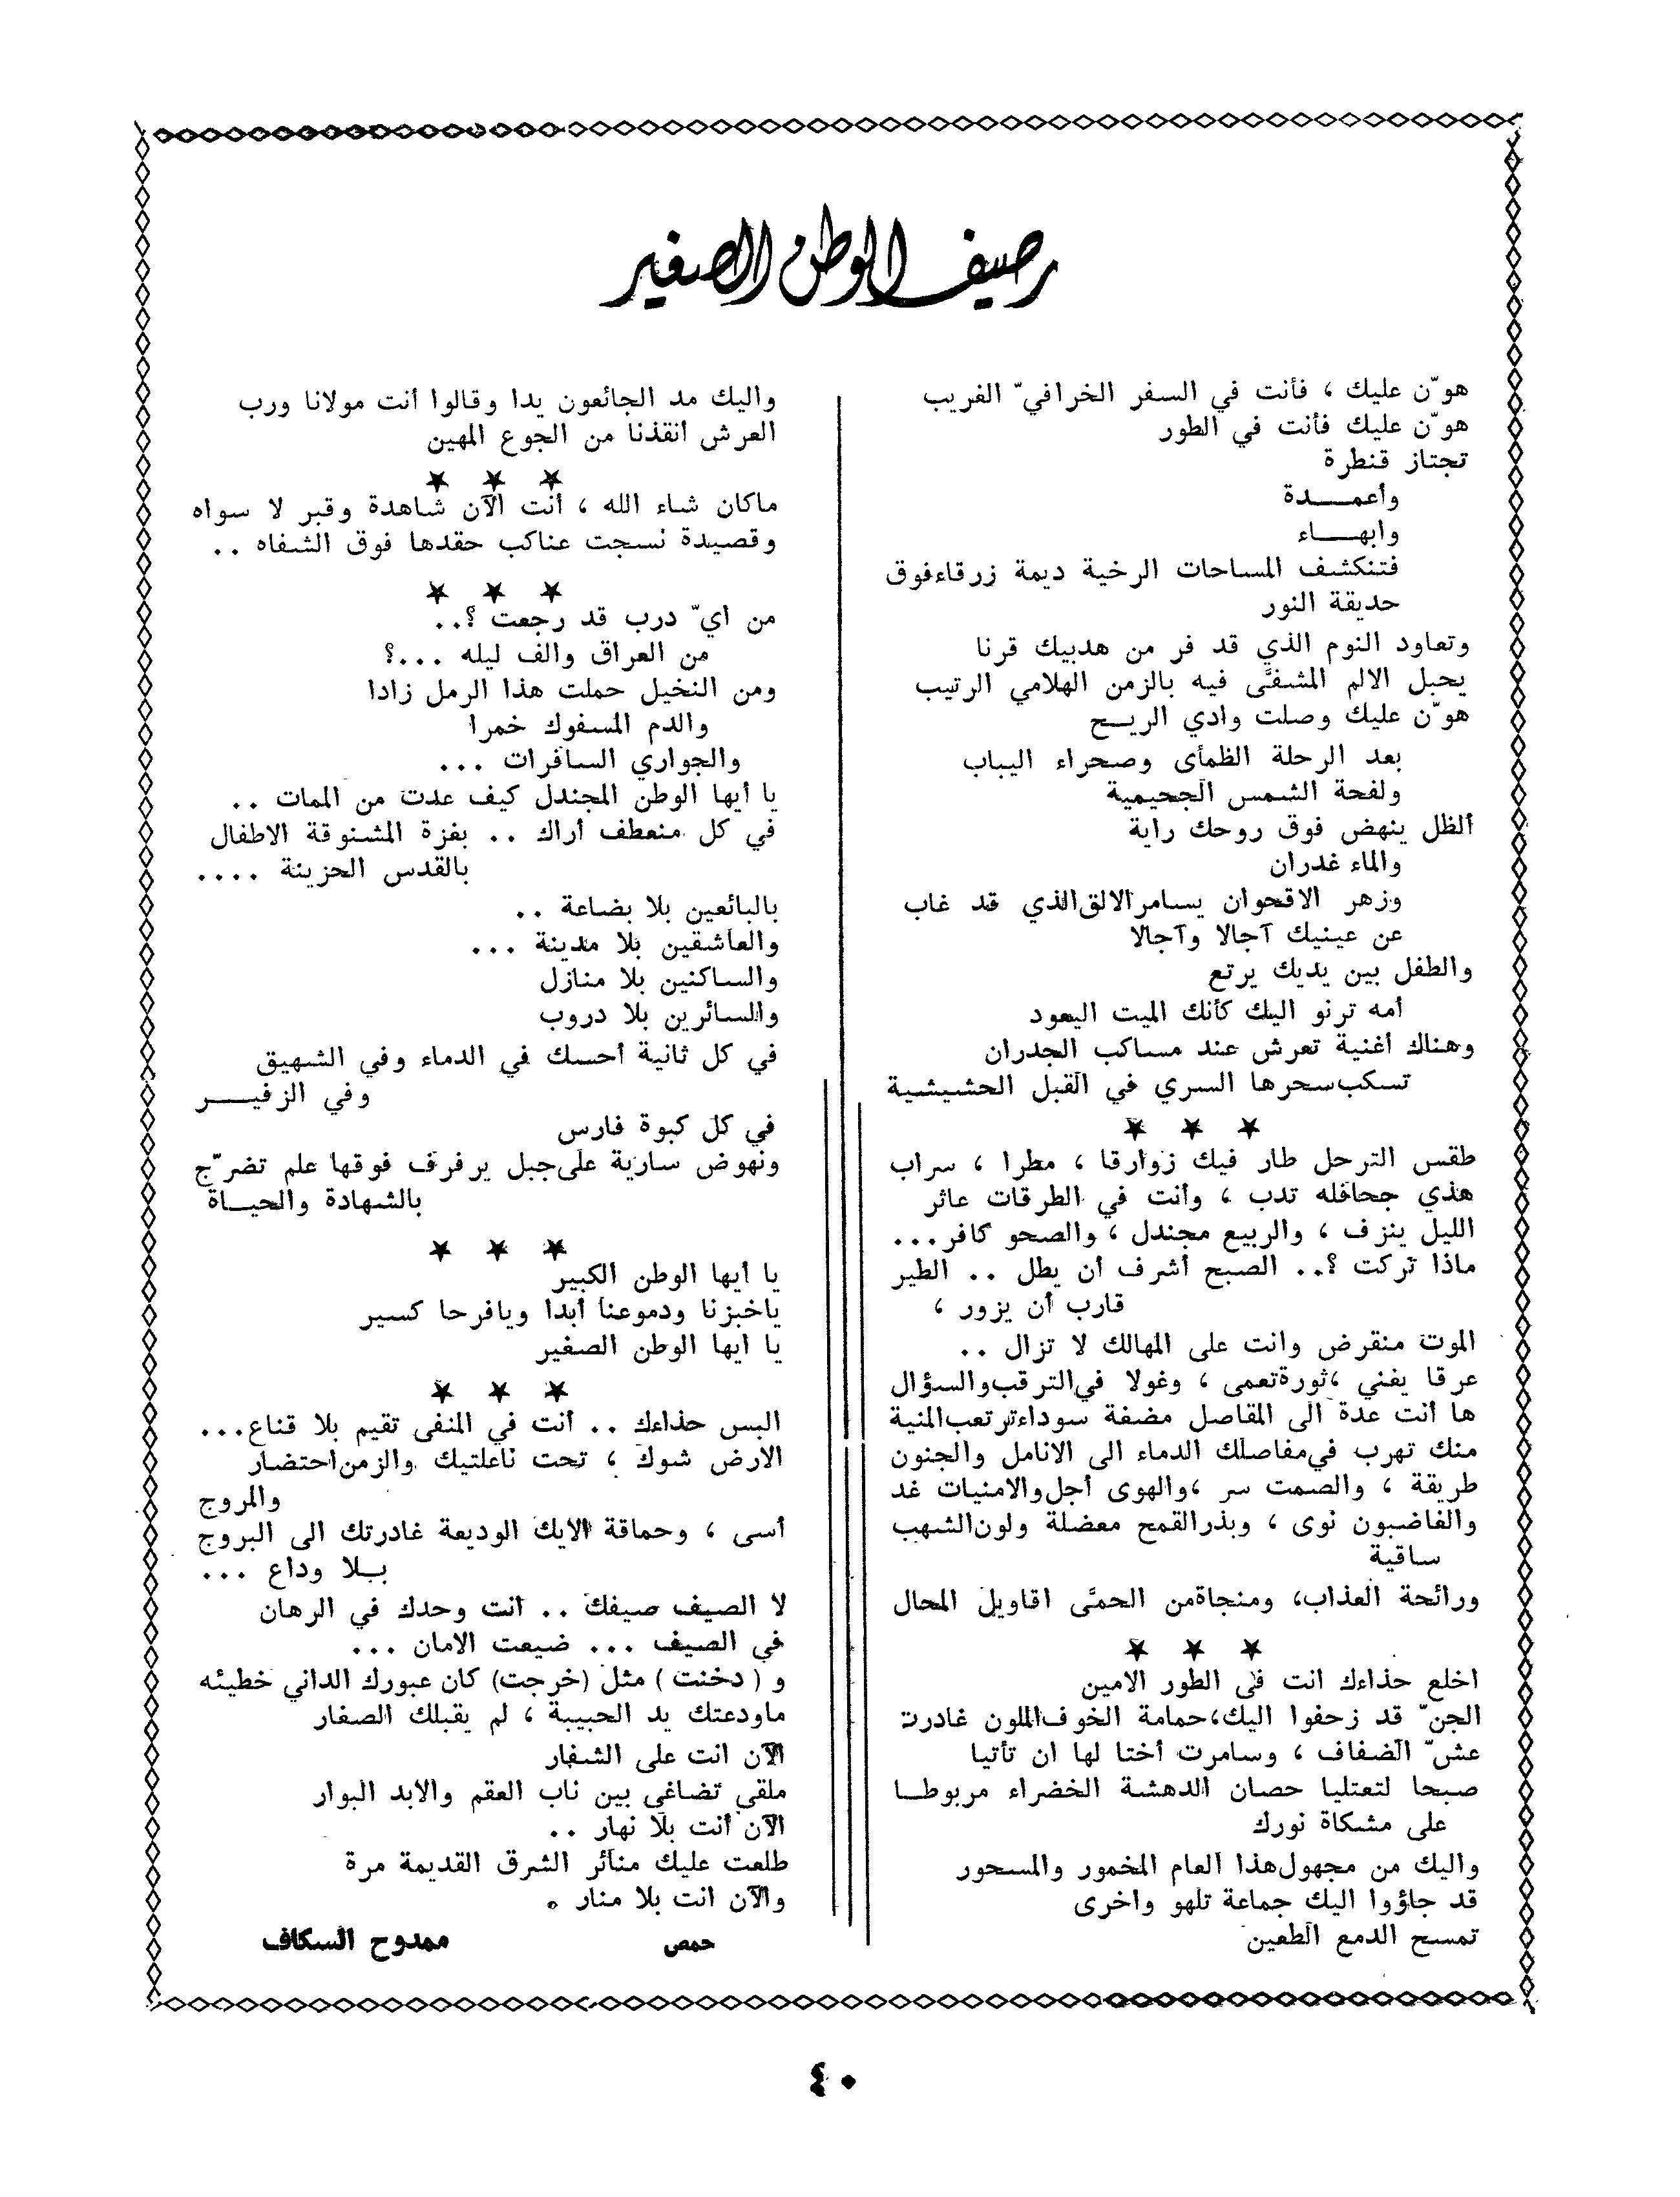 رصيف الوطن الصغير
هوّن عليك ، فأنت في السفر الخرافيّ الغريب
هوّن عليك فأنت في الطور
تجتاز قنطرة
وأعمـــدة
وابهـــاء
فتنكشف المساحات الرخية ديمة زرقاءفوق
حديقة النور
وتعاود النوم الذي قد فر من هدبيك قرنا
يحبل الالم المشفَّى فيه بالزمن الهلامي الرتيب
هوّن عليك وصلت وادي الريــح
بعد الرحلة الظمأى وصحراء اليباب
ولفحة الشمس الجحيمية
ألظل ينهض فوق روحك راية
والماء غدران
وزهر الاقحوان يسامرالالق الذي قد غاب
عن عينيك آجالا وآجالا
والطفل بين يديك يرتع
أمه ترنو اليك كأنك الميت اليعود
وهناك أغنية تعرش عند مساكب الجدران
تسكب سحرها السري في القبل الحشيشية
★ ★ ★
طقس الترحل طار فيك زوارقا ، مطرا ، سراب
هذي جحافله تدب ، وأنت في الطرقات عاثر
الليل ينزف ، والربيع مجندل ، والصحو كافر...
ماذا تركت ؟.. الصبح أشرف أن يطل .. الطير
قارب أن يزور ،
الموت منقرض وانت على المهالك لا تزال ..
عرقا يغني ،ثورةتعمى ، وغولا في الترقب والسؤال
ها أنت عدة الى المقاصل مضغة سوداءترتعب المنية
منك تهرب في مفاصلك الدماء الى الانامل والجنون
طريقة ، والصمت سر ،والهوى أجل والامنيات غد
والغاضبون نوى ، وبذرالقمح معضلة ولون الشهب
ساقية
ورائحة العذاب، ومنجاةمن الحمَّى اقاويل المحال
★ ★ ★
اخلع حذاءك انت في الطور الامين
الجنّ قد زحفوا اليك،حمامة الخوف الملون غادرت
عشّ الضفاف ، وسامرت أختا لها ان تأتيا
صبحا لتعتليا حصان الدهشة الخضراء مربوطــا
على مشكاة نورك
واليك من مجهول هذا العام المخمور والمسحور
قد جاؤوا اليك جماعة تلهو واخرى
تمسح الدمع الطعين
واليك مد الجائعون يدا وقالوا أنت مولانا ورب
العرش أنقذنا من الجوع المهين
★ ★ ★
ماكان شاء الله ، أنت الآن شاهدة وقبر لا سواه
وقصيدة نسجت عناكب حقدها فوق الشفاه ..
★ ★ ★
من أيّ درب قد رجعت ؟..
من العراق والف ليله ...؟
ومن النخيل حملت هذا الرمل زادا
والدم المسفوك خمرا
والجواري السافرات ...
يا أيها الوطن المجندل كيف عدت من الممات ..
في كل منعطف أراك .. بغزة المشنوقة الاطفال
بالقدس الحزينة ....
بالبائعين بلا بضاعة ..
والعاشقين بلا مدينة ...
والساكنين بلا منازل
والسائرين بلا دروب
في كل ثانية أحسك في الدماء وفي الشهيق
وفي الزفيـــر
في كل كبوة فارس
ونهوض سارية على جبل يرفرف فوقها علم تضرّج
بالشهادة والحيــاة
★ ★ ★
يا أيها الوطن الكبير
ياخبزنا ودموعنا أبدا ويافرحا كسير
يا ايها الوطن الصغير
★ ★ ★
البس حذاءك .. أنت في المنفى تقيم بلا قناع...
الارض شوك ، تحت ناعلتيك والزمن احتضار
والمروج
أسى ، وحماقة الايك الوديعة غادرتك الى البروج
بــلا وداع ...
لا الصيف صيفك .. أنت وحدك في الرهان
في الصيف ... ضيعت الامان ...
و ( دخنت ) مثل (خرجت) كان عبورك الداني خطيئه
ماودعتك يد الحبيبة ، لم يقبلك الصغار
الآن انت على الشفار
ملقى تضاغي بين ناب العقم والابد البوار
الآن أنت بلا نهار ..
طلعت عليك منائر الشرق القديمة مرة
والآن انت بلا منار .
حمص ممدوح السكاف
٤٠